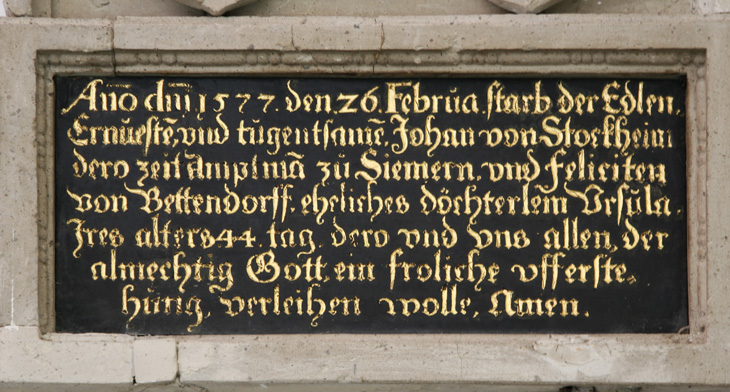 Año dm̄ 1577. den 26. Februa starb der Edlen,
Ernuestē, vnd tugentsamē, Johan von Stockheim
dero zeit Amptmā zu Siemern, vnd feliciten
von Bettendorff. eheliches döchterlein Vrsula.
Ires alters 44. tag. dero vnd vns allen, der
almechtig Gott, ein froliche vfferste,
hung, verleihen wolle, Amen.